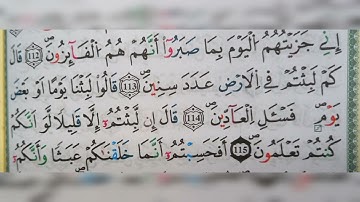 إِنِّي جَزَيْتُهُمُ الْيَوْمَ بِمَا صَبَرُوٓا۟ أَنَّهُمْ هُمُ الْفَآئِزُونَ ﴿112﴾ قَالَ
كَمْ لَبِثْتُمْ فِي الْاَرْضِ عَدَدَ سِنِينَ ﴿113﴾ قَالُوا لَبِثْنَا يَوْمًا اَوْ بَعْضَ
يَوْمٍ فَسْـَٔلِ الْعَآدِّينَ ﴿114﴾ قَالَ إِن لَّبِثْتُمُۥٓ إِلَّا قَلِيلًا لَّوْ أَنَّكُمْ
كُنتُمْ تَعْلَمُونَ ﴿115﴾ أَفَحَسِبْتُمُۥٓ أَنَّمَا خَلَقْنَٰكُمْ عَبَثًا وَأَنَّكُمُۥٓ